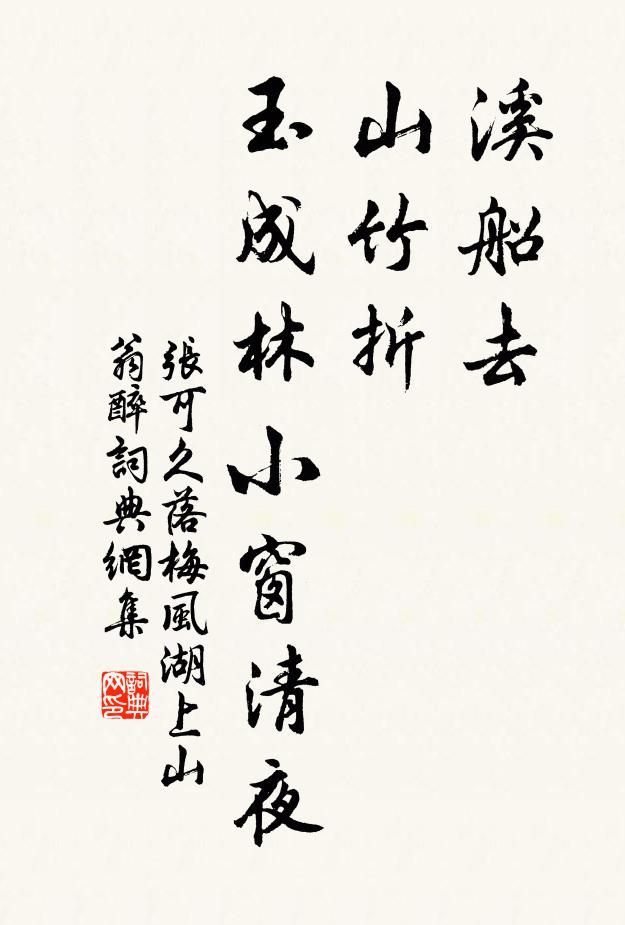 溪船去
山竹折
玉成林小窗清夜
張可久落梅風湖上山
翁醉詞典網集
詞典
网印